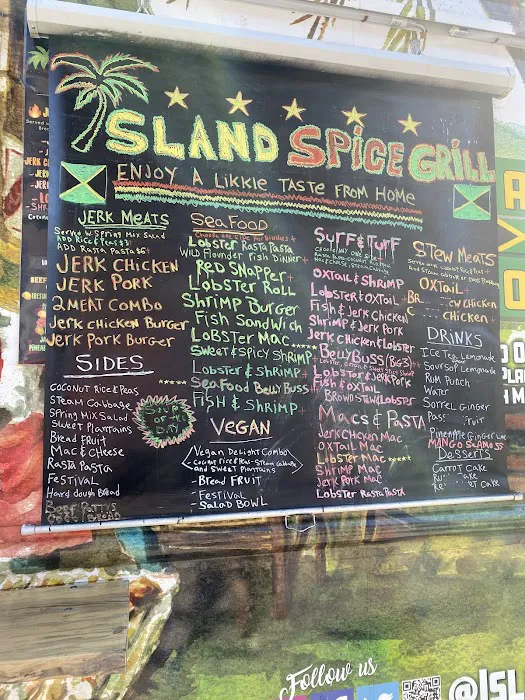 ISLAND SPICE GRILL
ENJOY A LIKKLE TASTE FROM HOME
JERK MEATS
Served w. Spring Mix Salad
ADD Rice & Peas $3
ADD RASTA PASTA $6+
JERK CHICKEN
JERK PORK
2 MEAT COMBO
Jerk Chicken Burger
Jerk Pork Burger
SIDES
COCONUT Rice & Peas
STEAM Cabbage
Spring Mix Salad
SWEET Plantains
Bread Fruit
Mac & Cheese
Rasta Pasta
Festival
Hard dough Bread
Beef Patties
SOUP OF THE DAY
Sea Food
Lobster Rasta Pasta
WILD Flounder Fish DINNER+
RED SNAPPER+
LOBSTER ROLL
Shrimp Burger
Fish Sandwich
LOBSTER Mac
SWEET & Spicy SHRIMP+
Lobster & SHRIMP+
Seafood Belly Buss+
FISH & SHRIMP+
VEGAN
Vegan Delight Combo
Coconut Rice & Peas - Steam Cabbage
and Sweet Plantains
- Bread FRUIT
- Festival
- SALAD BOWL
SURF & TURF
OXTAIL & SHRIMP
LOBSTER & OXTAIL+
Fish & Jerk Chicken
Shrimp & Jerk Pork
Jerk Chicken & Lobster
BellyBuss (BG3)++
LOBSTER & Jerk Pork
Fish & OXTAIL
BROWN STEW LOBSTER
Macs & PASTA
JERK CHICKEN Mac
OXTAIL Mac
Lobster Mac
Shrimp Mac
Jerk Pork Mac
LOBSTER RASTA PASTA
STEW MEATS
OXTAIL
CHICKEN
CHICKEN +
DRINKS
ICE TEA, Lemonade
SOURSOP Lemonade
Rum Punch
Water
Sorrel Ginger
Fruit
Pineapple Ginger
Desserts
Carrot Cake
Follow us
@ISL